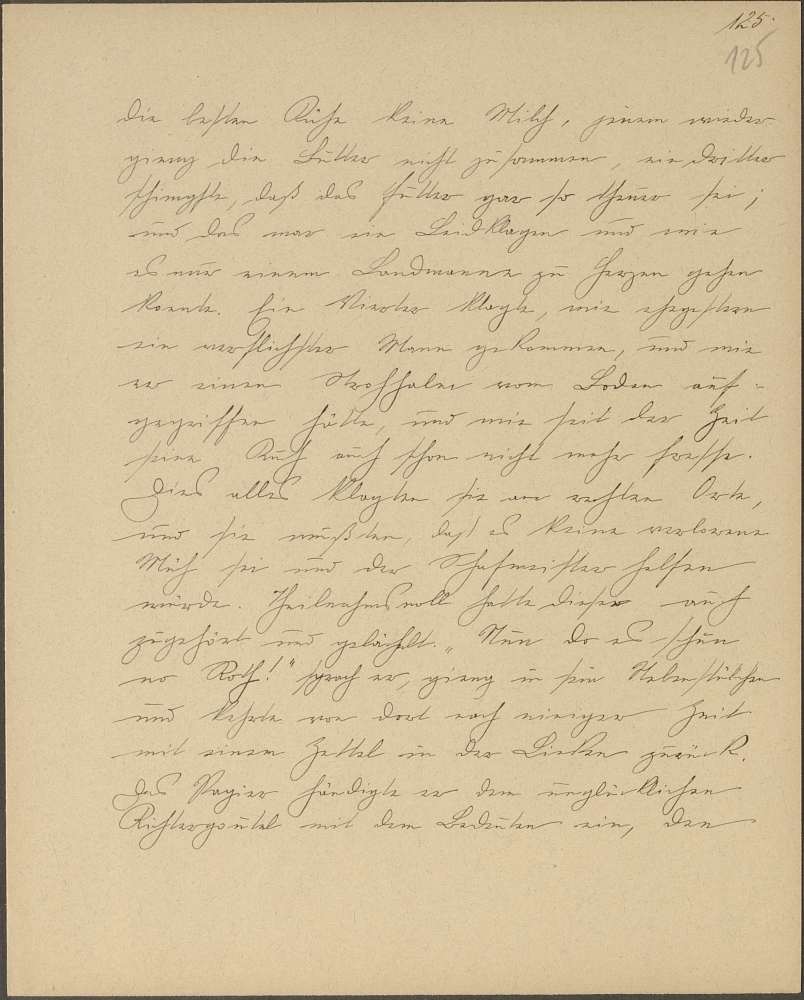 125.
125
die besten Kühe keine Milch, jenem wieder
gieng die Butter nicht zusammen, ein dritter
schimpfte, daß das Futter gar so theuer sei;
und das war ein Leidklagen und wie
es nur einem Landmanne zu Herzen gehen
konnte. Ein Vierter klagte, wie ehegestern
ein Mann gekommen, und wie
er einen Strohhalm vom Boden auf-
gegriffen hätte, und wie seit der Zeit
seine Kuh auch schon nicht mehr fresse.
Dies alles klagten sie am rechten Orte,
und sie wußten, daß es keine verlorene
Müh sei und der Schafmeister helfen
würde. Theilnahmsvoll hatte dieser auch
zugehört und gelächelt. „Nun do es schun
no Roth!" sprach er, gieng in sein Nebenstübchen
und kehrte von dort nach einiger Zeit
mit einem Zettel in der Linken zurück.
Das Papier händigte er dem unglücklichen
mit dem Bedeuten ein, den